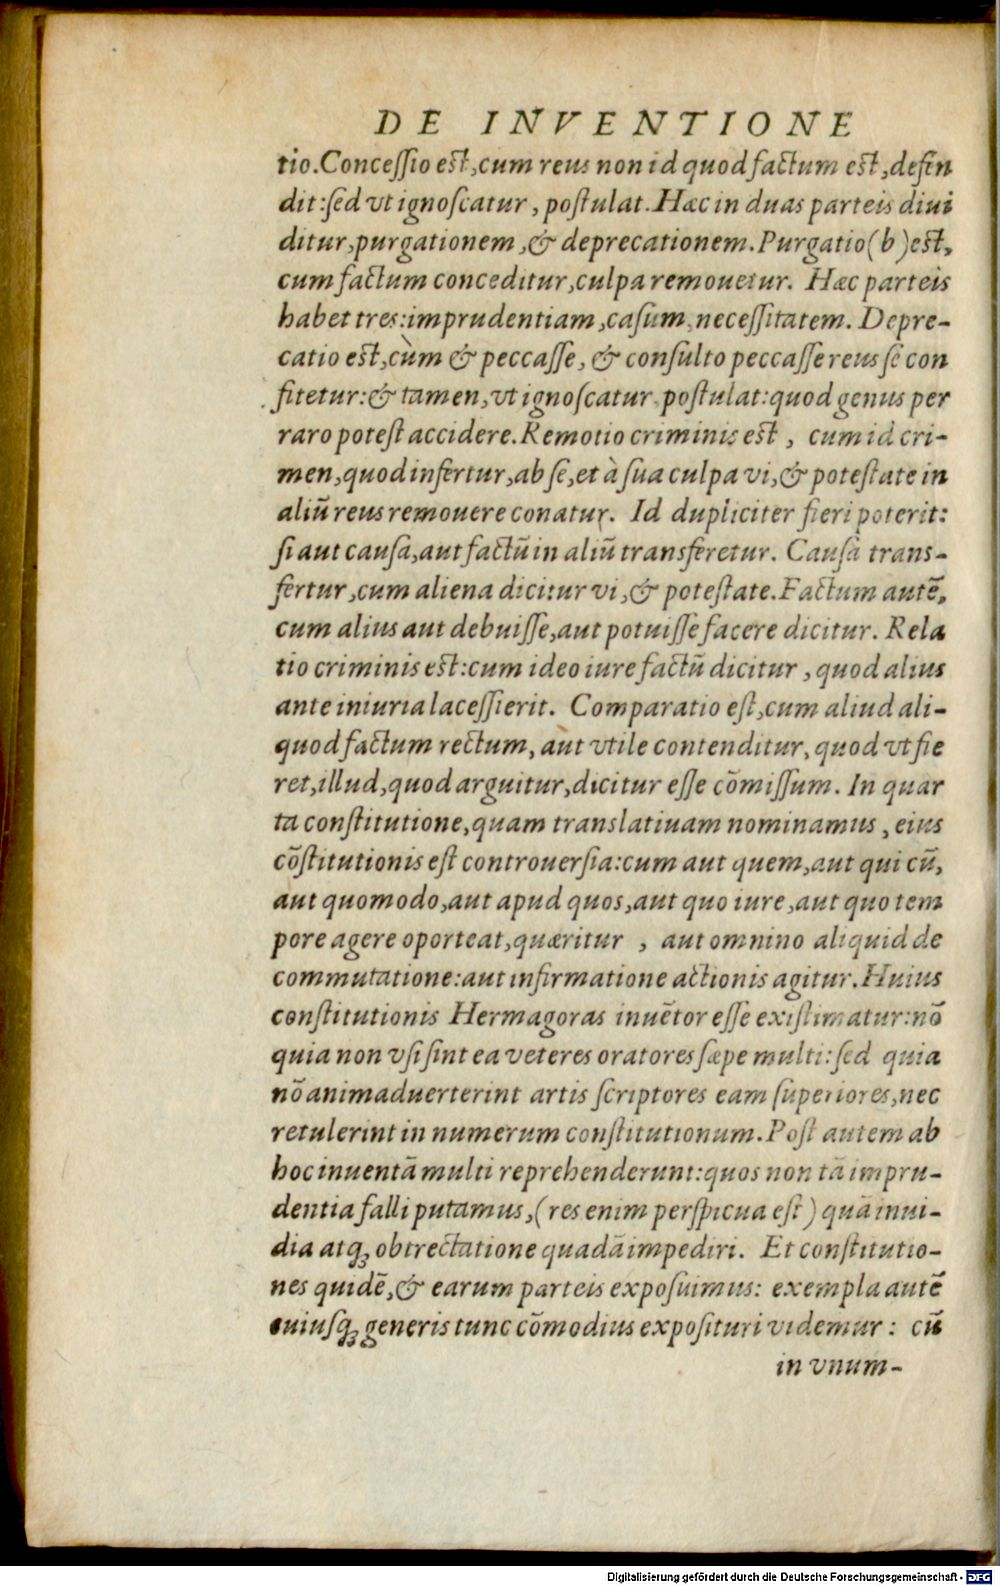 DE INVENTIONE
tio.Conceſſio est,cum reus non id quod factum est,defen
dit:ſed vt ignoſcatur, poſtulat.Hæc in duas parteis diui
ditur,purgationem,& deprecationem.Purgatio(b)est,
cum factum conceditur,culpa remouetur. Hæc parteis
habet tres:imprudentiam,caſum,neceſſitatem. Depre-
catio est,cùm & peccaſſe, & conſulto peccaſſe reus ſe con
fitetur:& tamen,vt ignoſcatur poſtulat:quod genus per
raro poteſt accidere.Remotio criminis est, cum id cri-
men,quod infertur,ab ſe,et à ſua culpa vi,& poteſtate in
aliū reus remouere conatur. Id dupliciter fieri poterit:
ſi aut cauſa,aut factū in aliū transferetur. Cauſa trans-
fertur,cum aliena dicitur vi,& poteſtate.Factum autē,
cum alius aut debuiſſe,aut potuiſſe facere dicitur. Rela
tio criminis est:cum ideo iure factū dicitur, quod alius
ante iniuria laceſſierit. Comparatio eſt,cum aliud ali-
quod factum rectum, aut vtile contenditur, quod vt fie
ret,illud,quod arguitur,dicitur eſſe cōmiſſum. In quar
ta conſtitutione,quam translatiuam nominamus, eius
cōſtitutionis eſt controuerſia:cum aut quem,aut qui cū,
aut quomodo,aut apud quos,aut quo iure,aut quo tem
pore agere oporteat,quæritur, aut omnino aliquid de
commutatione:aut infirmatione actionis agitur.Huius
conſtitutionis Hermagoras inuētor eſſe exiſtimatur:nō
quia non vſi ſint ea veteres oratores ſæpe multi:ſed quia
nō animaduerterint artis ſcriptores eam ſuperiores,nec
retulerint in numerum conſtitutionum.Poſt autem ab
hoc inuentā multi reprehenderunt:quos non tā impru-
dentia falli putamus,(res enim perſpicua eſt) quā inui-
dia atq; obtrectatione quadā impediri. Et conſtitutio-
nes quidē,& earum parteis expoſuimus: exempla autē
cuiuſq; generis tunc cōmodius expoſituri videmur: cū
in vnum-
Digitalisierung gefördert durch die Deutsche Forschungsgemeinschaft - DFG